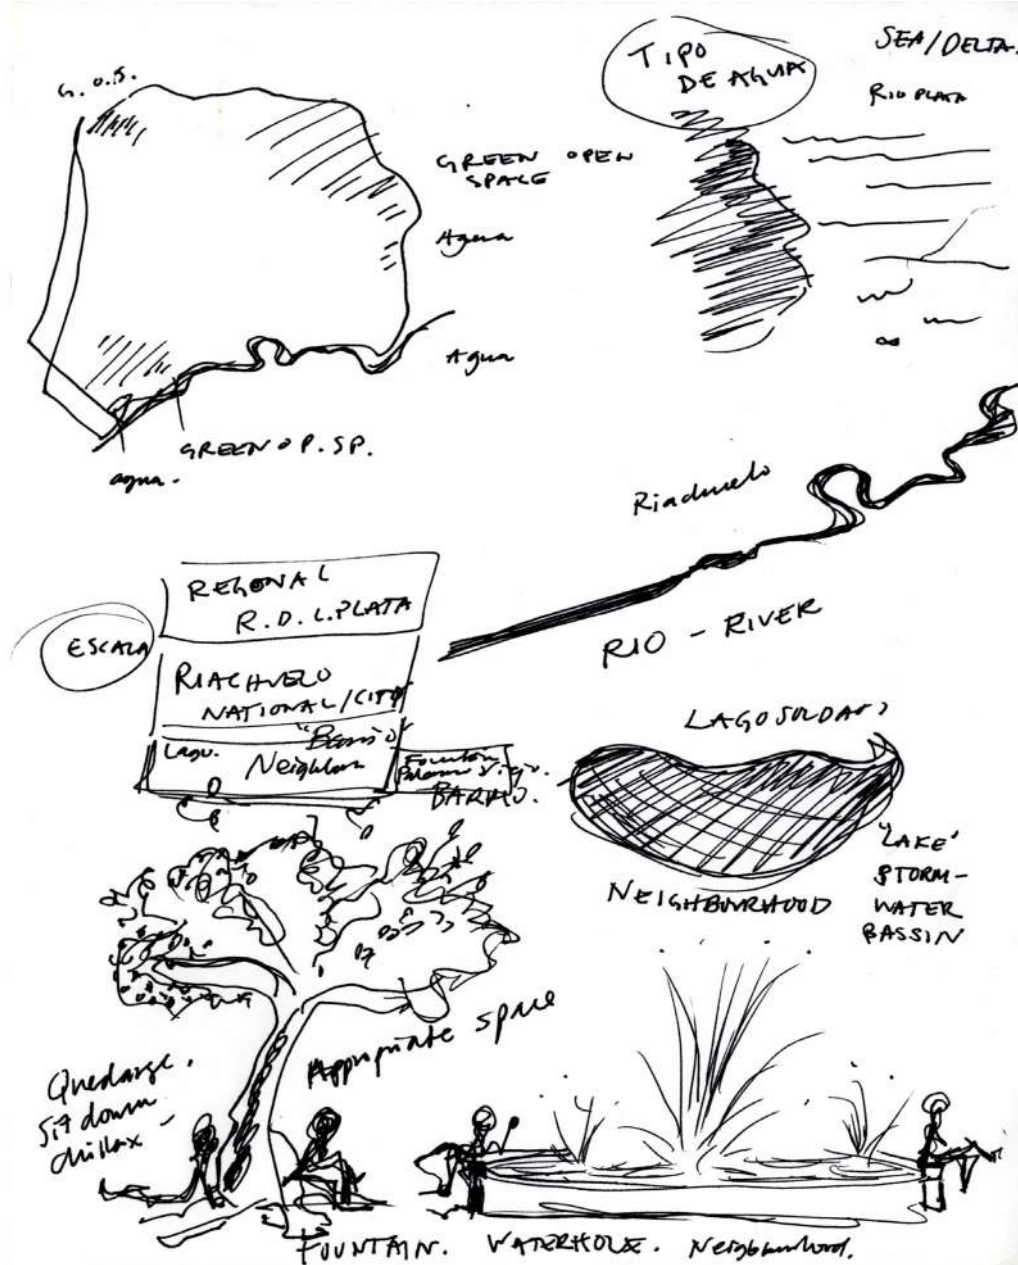 G.O.S.
TIPO
DE AGUA
SEA/DELTA.
RIO PLATA
GREEN OPEN
SPACE
Agua
Agua
GREEN OP. SP.
agua.
Riachuelo
RIO - RIVER
ESCALA
REGONAL
R.D.L.PLATA
RIACHUELO
NATIONAL/CITY
"Barrio"
Lagu.
Neighbou
Fountain
BARRIO.
LAGO SOLDATI
NEIGHBOURHOOD
'LAKE'
STORM-
WATER
BASSIN
Appropriate space
Quedarse.
Sit down
chillax -
FOUNTAIN. WATERHOLE. Neighbourhood.